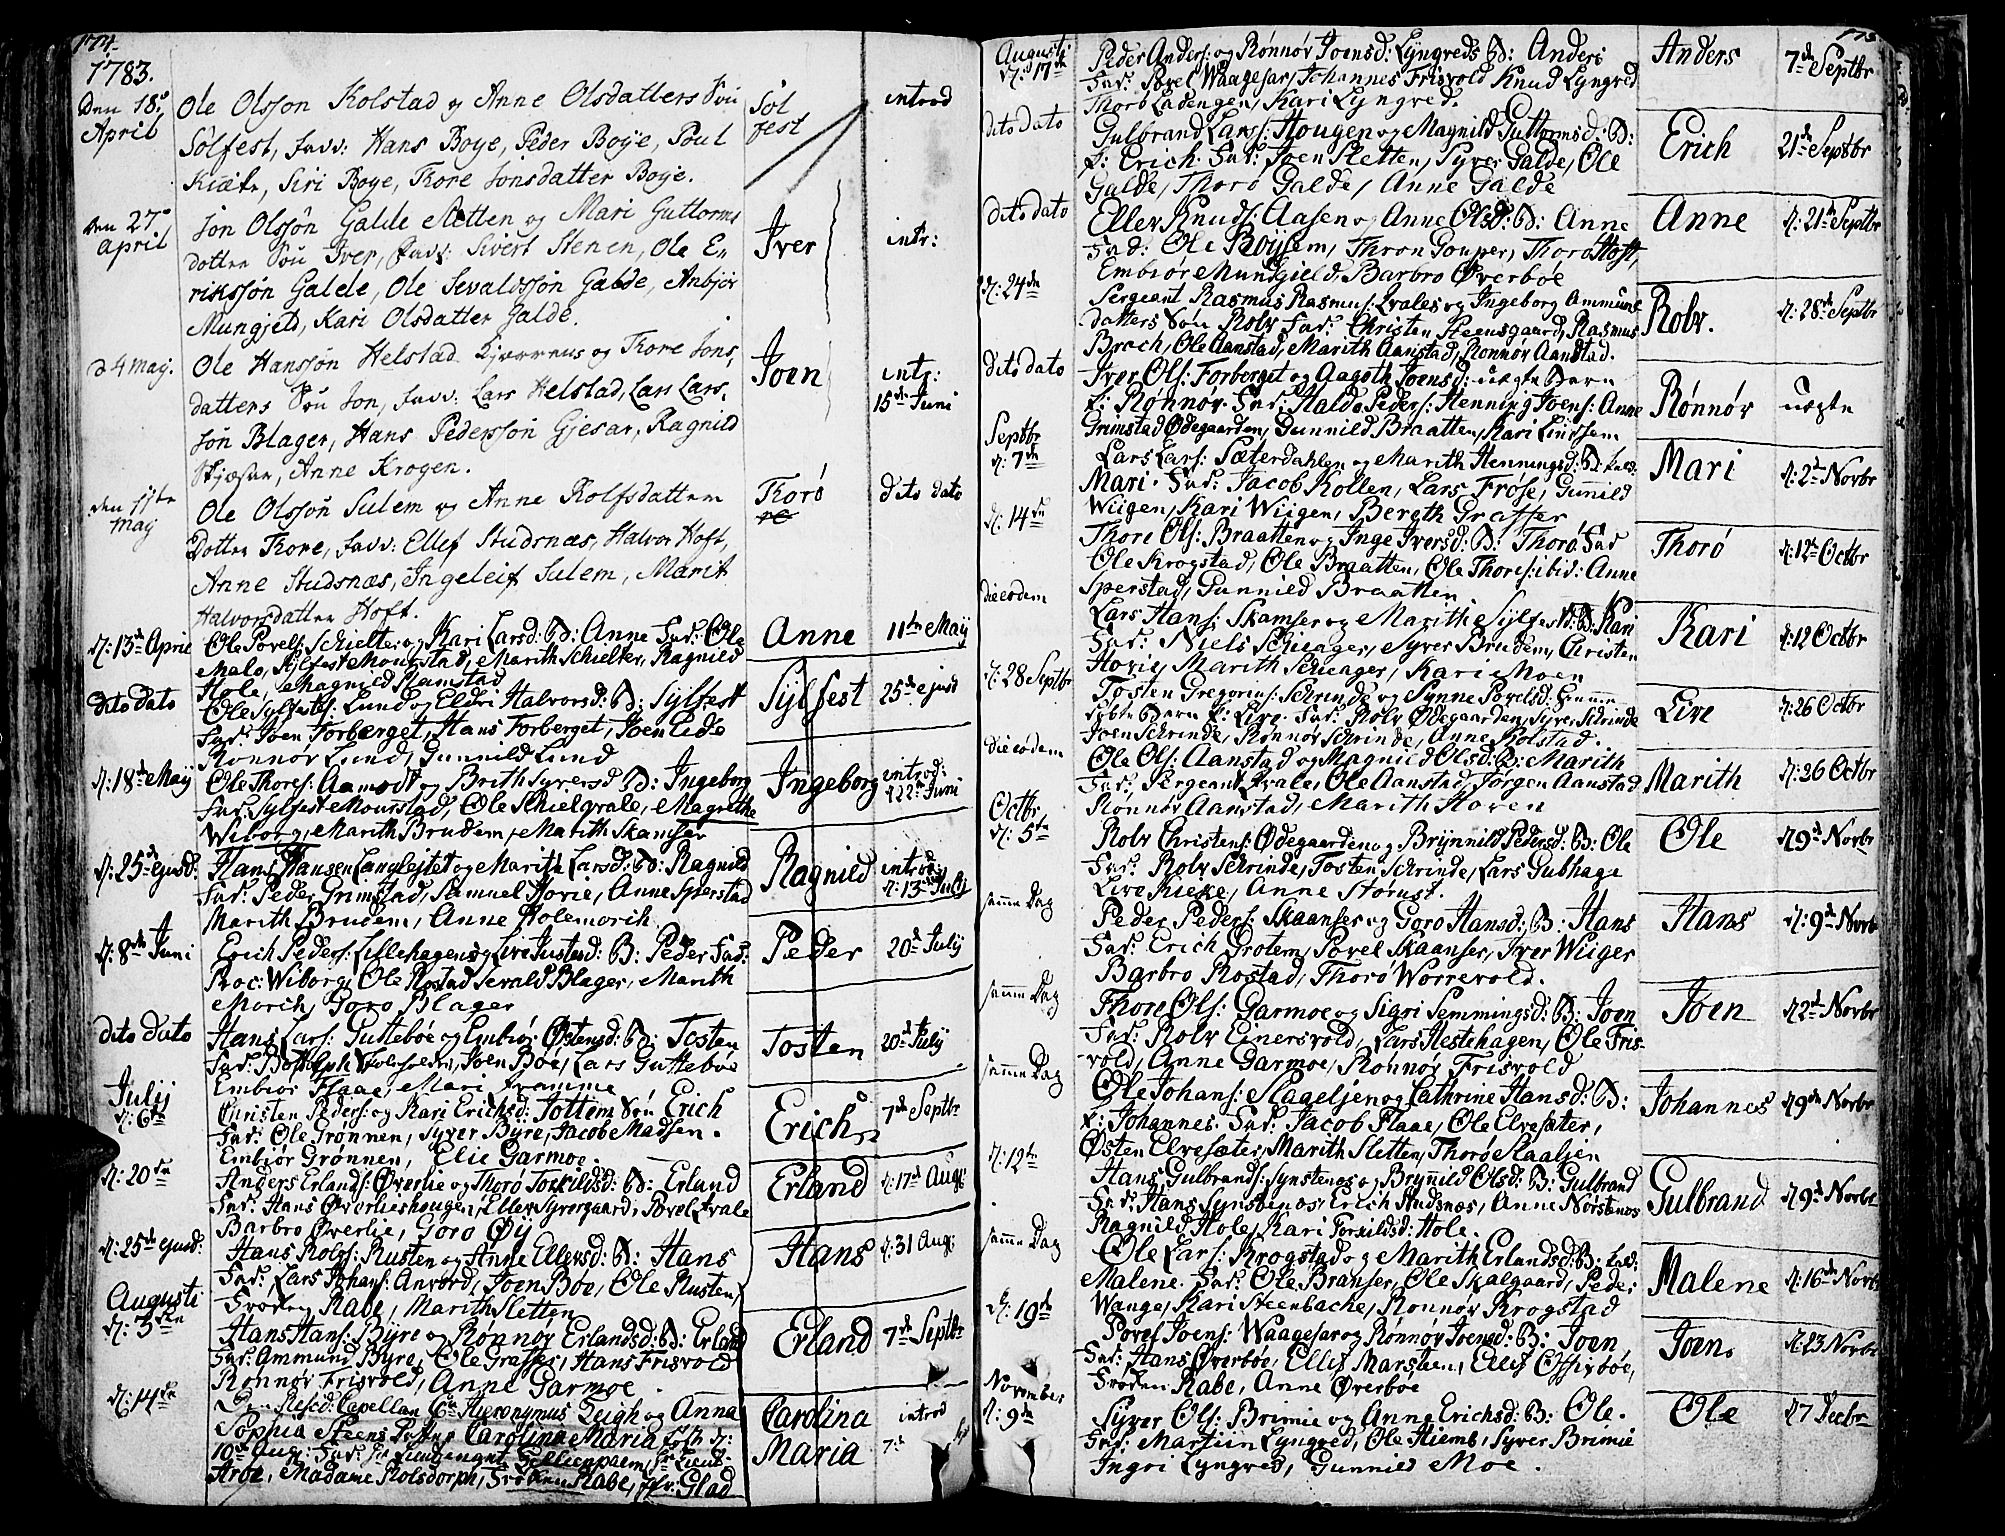 174.
1783.
Den 18de April
Ole Olsson Kolstad og Anne Olsdatters Søn
Sølfest, favv: Hans Boye, Peder Boye, Poul
Kiæte, Siri Boye, Thore Jonsdatter Boye.
Søl
fest
introd
den 27de April
Jon Olssøn Galde Sletten og Mari Guttorms
dotter Søn Iver, favv: Sivert Stenen, Ole E
rikssøn Galde, Ole Sevaldssøn Galde, Anbjør
Mungjeld, Kari Olsdatter Galde.
Iver
intr:
d 4 may.
Ole Hanssøn Helstad og Thore Jons
datters Søn Jon, favv: Lars Helstad, Lars Lars
søn Blager, Hans Pederssøn Gjesar, Ragnild
Skjæser, Anne Krogen.
Joen
intr:
15de Juni
den 11te may
Ole Olssøn Sulem og Anne Rolfsdatter
Dotter Thore, favv: Ellef Studsnæs, Halvor Hoft,
Anne Studsnæs, Ingeleif Sulem, Marit
Halvorsdatter Hoft.
Thorø
dito dato
d: 13de April
Ole Povels: Schielter og Kari Larsd: B: Anne Fad: Ole
Melo, Sylfest Mourstad, Marith Schielter, Ragnild
Hole, Magnild Ramstad
Anne
11te Maij
dito dato
Ole Sylfests: Lund og Eldri Halvorsd: B: Sylfest
Fad: Joen Forberget, Hans Forberget, Joen Lide
Rønnør Lund, Gunnild Lund
Sylfest
25de ejusd
d: 18de Maij
Ole Thores: Aamodt og Brith Syversd B: Ingeborg
Fad: Sylfest Mourstad, Ole Schielqvale, Magrethe
Wiborg, Marith Brudem, Marith Skamsar
Ingeborg
introd:
d 22de Juni
d: 25de ejusd:
Hans Hansen Langlejtet og Marith Larsd: B: Ragnild
Fad: Peder Grimstad, Samuel Horie, Anne Sperstad
Marith Brudem, Anne Holemorch
Ragnild
introd:
d: 13de July
d: 8de Juni
Erich Peders: Lillehagen og Live Justesd: B: Peder Fad:
Proc: Wiborg, Ole Rostad Sevald Blager, Marith
March, Goro Blager
Peder
20de Julij
dito dato
Hans Lars: Guttebøe og Embiør Østensd: B: Tosten
Joen Boe, Lars Guttebøe
Embiør Flaae, Mari Kramme
Tosten
20de July
Julij
d: 6te
Christen Peders: og Kari Erichsd: Jottem Søn Erich
Fad: Ole Grønnen, Syver Byre, Jacob Madsen.
Embiør Grønnen, Elie Garmoe.
Erich
7de Septbr
d: 20de
Anders Erlands: Øverlie og Thorø Torkildsd: B: Erland
Fad: Hans Øverlieshougen, Ellev Syvergaard, Povel Kvale
Barbro Øverlie, Goro Øy
Erland
d: 17de Aug:
d: 25de ejusd:
Hans Rolfs: Rusten og Anne Ellevsd: B: Hans
Fad: Lars Johans: Anvord, Joen Boe, Ole Rusten,
Frøden Rabe, Marith Sletten
Hans
d: 31 Aug:
Augusti
d: 3die
Hans Hans: Byre og Rønnør Erlandsd: B: Erland
Fad: Ammund Byre, Ole Graffer, Hans Frisvold
Rønnør Frisvold, Anne Garmoe.
Erland
7de Septbr
d: 14de
Den Resid: Capellan Hr Hieronymus Leigh og Anna
Sophia Steens Datter Carolina Maria født d:
10de Aug: Fad: Hr Lieutenant
Madame Rolsdorph, Frøken Rabe, Glad
Carolina
Maria
introd
7de
175.
Augusti
d: 17de
Peder Anders: og Rønnør Joensd: Lyngreds B: Anders
Fad: Povel Waagesar, Johannes Frisvold Knud Lyngred
Thorø Ladengen, Kari Lyngred.
Anders
7de Septbr
dito dato
Gulbrand Lars: Hougen og Magnild Guttormsd: B:
k: Erich. Fad: Joen Sletten, Syver Galde, Ole
Galde, Thorø Galde, Anne Galde
Erich
21de Septbr
dito dato
Ellev Knuds: Aasen og Anne Olsd: B: Anne
Fad: Ole Røysem, Thron Gouper, Thorø Høft,
Embiør Mundgield, Barbro Øverboe
Anne
d: 21de Septbr
d: 24de
Sergeant Rasmus Rasmus: Kvales og Ingeborg Ammunds
datters Søn Rolv Fad: Christen Steensgaard, Rasmus
Brach, Ole Aanstad, Marith Aanstad, Rønnør Aanstad.
Rolv.
d: 28de Septbr
dito dato
Iver Ols: Forberget og Aagoth Joensd: uægte Barn
k: Rønnør. Fad: Halde Peders: Henning Joens: Anne
Grimstad Ødegaarden, Gunnild Braatten, Kari Lindsem
Rønnør
uægte
Septbr
d: 7de
Lars Lars: Sæterdahlen og Marith Henningsd: B: kald:
Mari. Fad: Jacob Kollen, Lars Frøse, Gunnild
Wiigen, Kari Wiigen, Bereth Graffer
Mari
d: 2de Novbr
d: 14de
Thore Ols: Braatten og Inge Iversd: B: Thorø. Fad
Ole Krogstad, Ole Braatten, Ole Thores: ibid: Anne
Sperstad, Gunnild Braatten.
Thorø
d: 12te Octbr
die eodem
Lars Hans: Skamsar og Marith Sylfestd: B: Kari
Fad: Niels Schieager, Syver Brudem, Christen
Horie, Marith Schieager, Kari Moen
Kari
d: 12 Octbr
d: 28 Septbr
Tosten Gregorius: Schrinde og Synne Povelsd:
døbte Barn k: Live. Fad: Rolv Ødegaarden, Syver Schrinde
Joen Schrinde, Rønnør Schrinde, Anne Kolstad.
Live
d: 26 Octbr
die eodem
Ole Ols: Aanstad og Magnild Olsd: B: Marith
Fad: Sergeant Kvale, Ole Aanstad, Jørgen Aanstad
Rønnør Aanstad, Marith Hoven
Marith
d: 26 Octbr
Octbr
d: 5te
Rolv Christens: Ødegaarden og Brynnild Pedersd: B: Ole
Fad: Rolv Schrinde, Tosten Schrinde, Lars Gubhage
Live Kieke, Anne Storust.
Ole
d 9de Novbr
samme Dag
Peder Peders: Skaanser og Goro Hansd: B: Hans
Fad: Erich Grotem, Povel Skaanser, Iver Wiiger
Barbro Rostad, Thorø Worrevold.
Hans
d: 9de Novbr
samme Dag
Thore Ols: Garmoe og Sigri Semmingsd: B: Joen
Fad: Rolv Einersvold, Lars Hestehagen, Ole Fris-
vold, Anne Garmoe, Rønnør Frisvold
Joen
d 2de Novbr
samme Dag
Ole Johans: Slageljen og Cathrine Hansd: B:
k: Johannes. Fad: Jacob Flaae, Ole Elvesæter,
Østen Elvesæter, Marith Sletten, Thorø Raaljen
Johannes
d 9de Novbr
d: 12te
Hans Gulbrands: Synstenos og Brynnild Olsd: B: Gulbrand
Fad: Hans Synstenos, Erich Hudsnæs, Anne Norstenos
Ragnild Hole, Kari Torkildsd: Hole.
Gulbrand
d 9de Novbr
samme Dag
Ole Lars: Krogstad og Marith Erlandsd: B: kald:
Malene. Fad: Ole Branser, Ole Skalgaard, Peder
Wange, Kari Steenbache, Rønnør Krogstad
Malene
d: 16de Novbr
d: 19de
Povel Joens: Waagesar og Rønnør Joensd: B: Joen
Fad: Hans Øverbøe, Ellef Marsteen, Ellef Offirbøe,
Frøden Rabe, Anne Øverbøe
Joen.
d: 23 Novbr
November
d: 9de
Syver Ols: Brimie og Anne Erichsd: B: Ole.
Fad: Martiin Lyngved, Ole Hiemb, Syver Brimie
Ingri Lyngved, Gunnild Moe.
Ole
d 7 Decbr